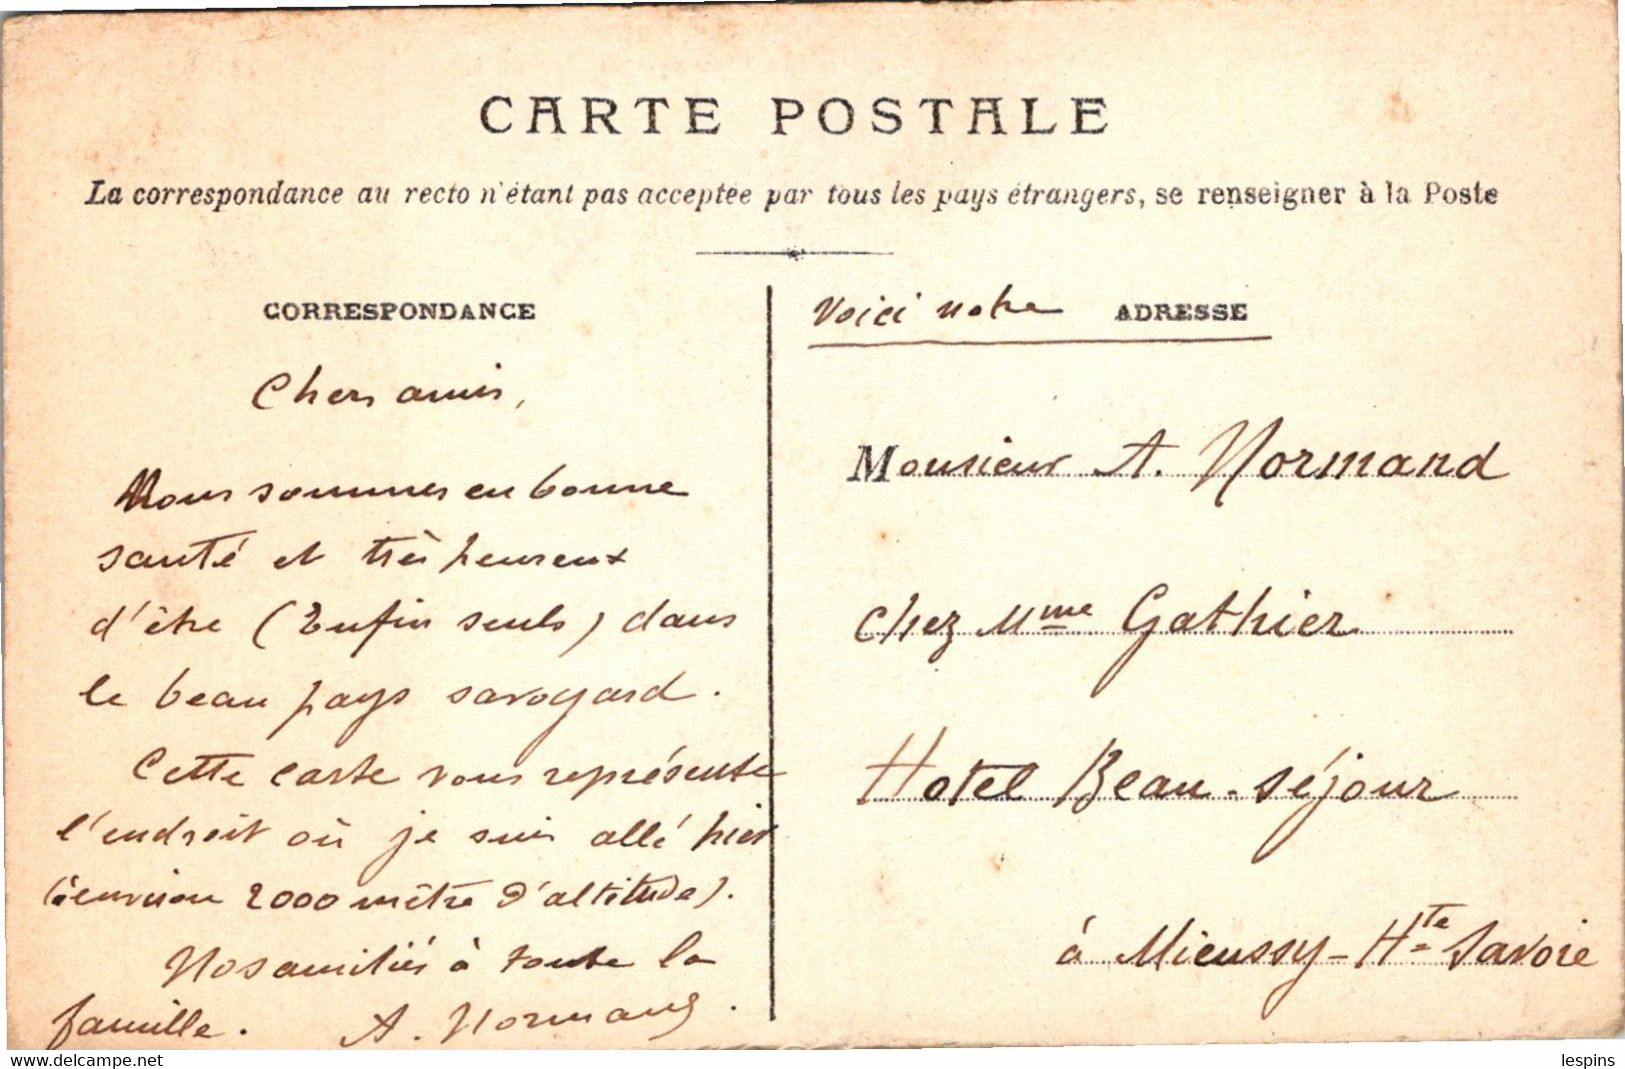 CARTE POSTALE
La correspondance au recto n'étant pas acceptée par tous les pays étrangers, se renseigner à la Poste
CORRESPONDANCE
Chers amis,
Nous sommes en bonne
santé et très heureux
d'être (Enfin seuls) dans
le beau pays savoyard.
Cette carte vous représente
l'endroit où je suis allé hier
(environ 2000 mètre d'altitude).
Nos amitiés à toute la
famille. A. Normand.
Voici notre ADRESSE
Monsieur A. Normand
chez Mme Gathier
Hotel Beau-séjour
à Mieussy-Hte Savoie
delcampe.net
lespins